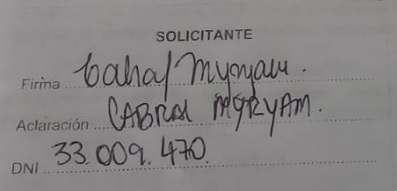 SOLICITANTE
Firma Cabral Myryam.
Aclaración CABRAL MYRYAM.
DNI 33.009.470